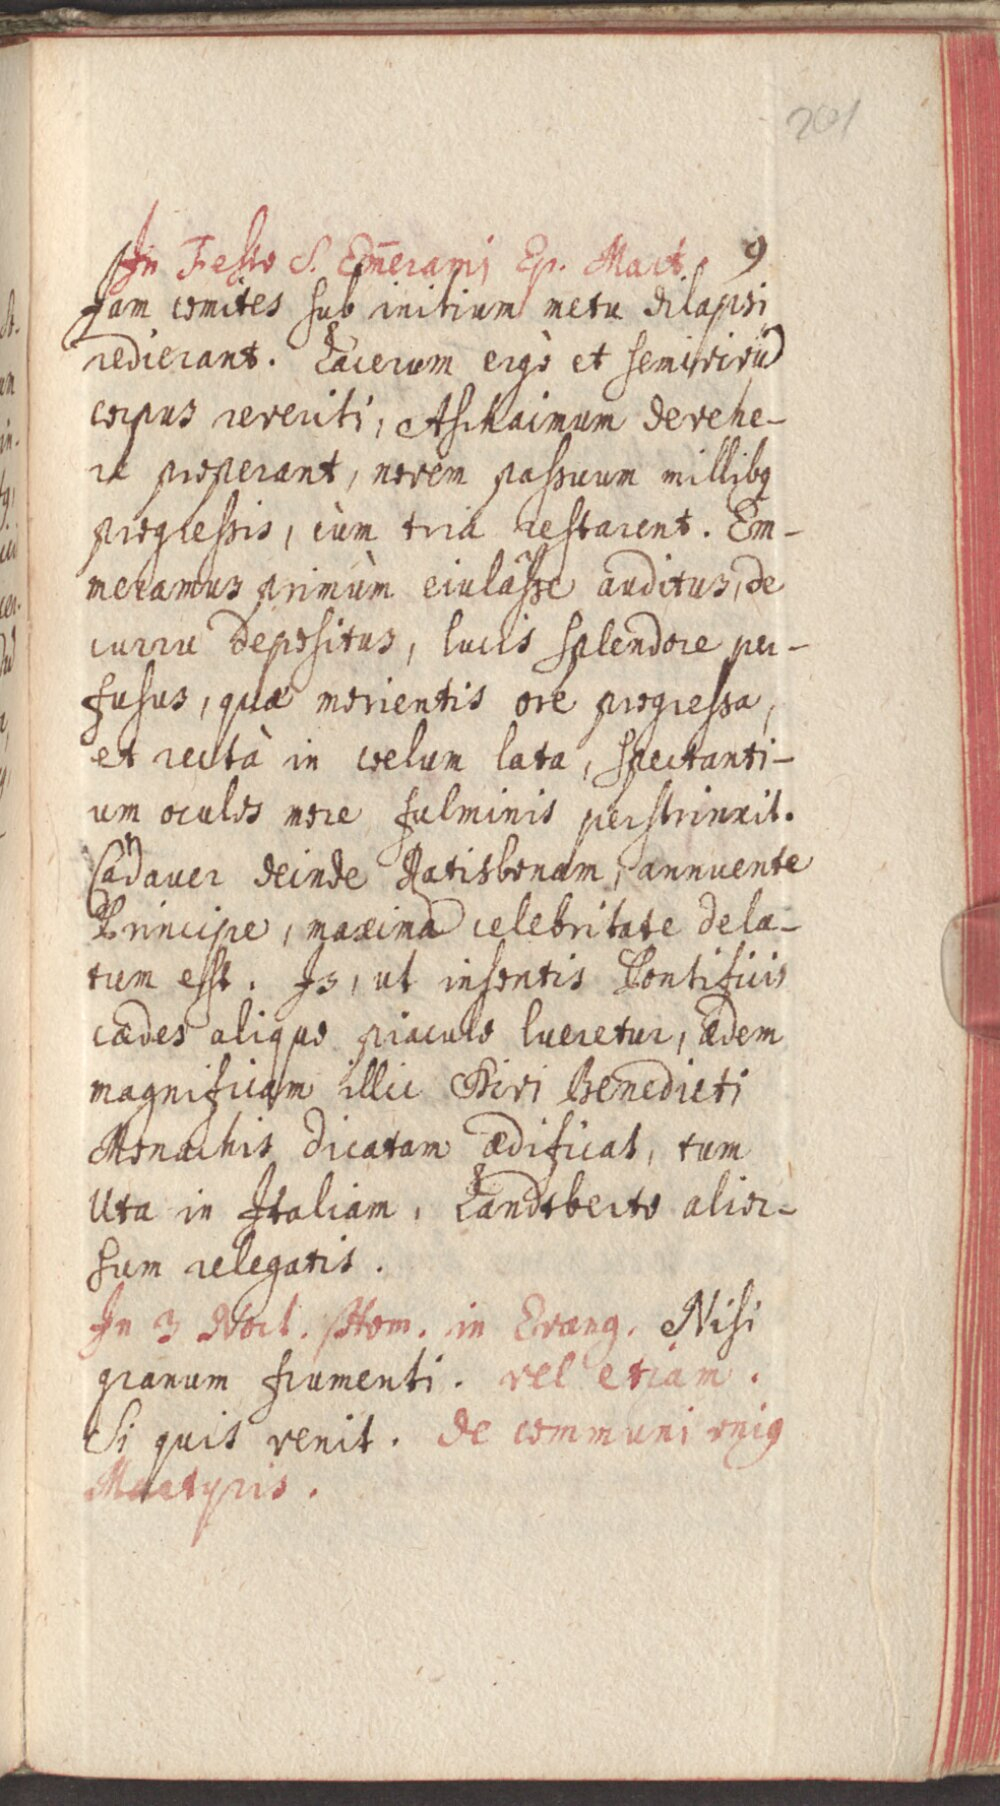 201
In Festo S. Em̄erami Ep. Mart. 9
Jam comites sub initium metu dilapsi
redierant. Lacerum ergò et semivivū
corpus reveriti, Aschaimum devehe-
re properant, novem passuum millibq
progressis, cùm tria restarent. Em-
meramus primùm eiulasse auditus, de
curru depositus, lucis splendore per-
fusus, quæ morientis ore progressa,
et rectà in coelum lata, spectanti-
um oculos more fulminis perstrinxit.
Cadaver deinde Ratisbonam, annuente
Principe, maxima celebritate dela-
tum est. Is, ut insontis Pontificis
cædes aliquo piaculo lueretur, ædem
magnificam illic Divi Benedicti
Monachis dicatam ædificat, tum
Uta in Italiam, Landtberto alior-
sum relegatis.
In 3 Noct. Hom. in Evang. Nisi
granum frumenti. vel etiam.
Si quis venit. de communi unig
Martyris.